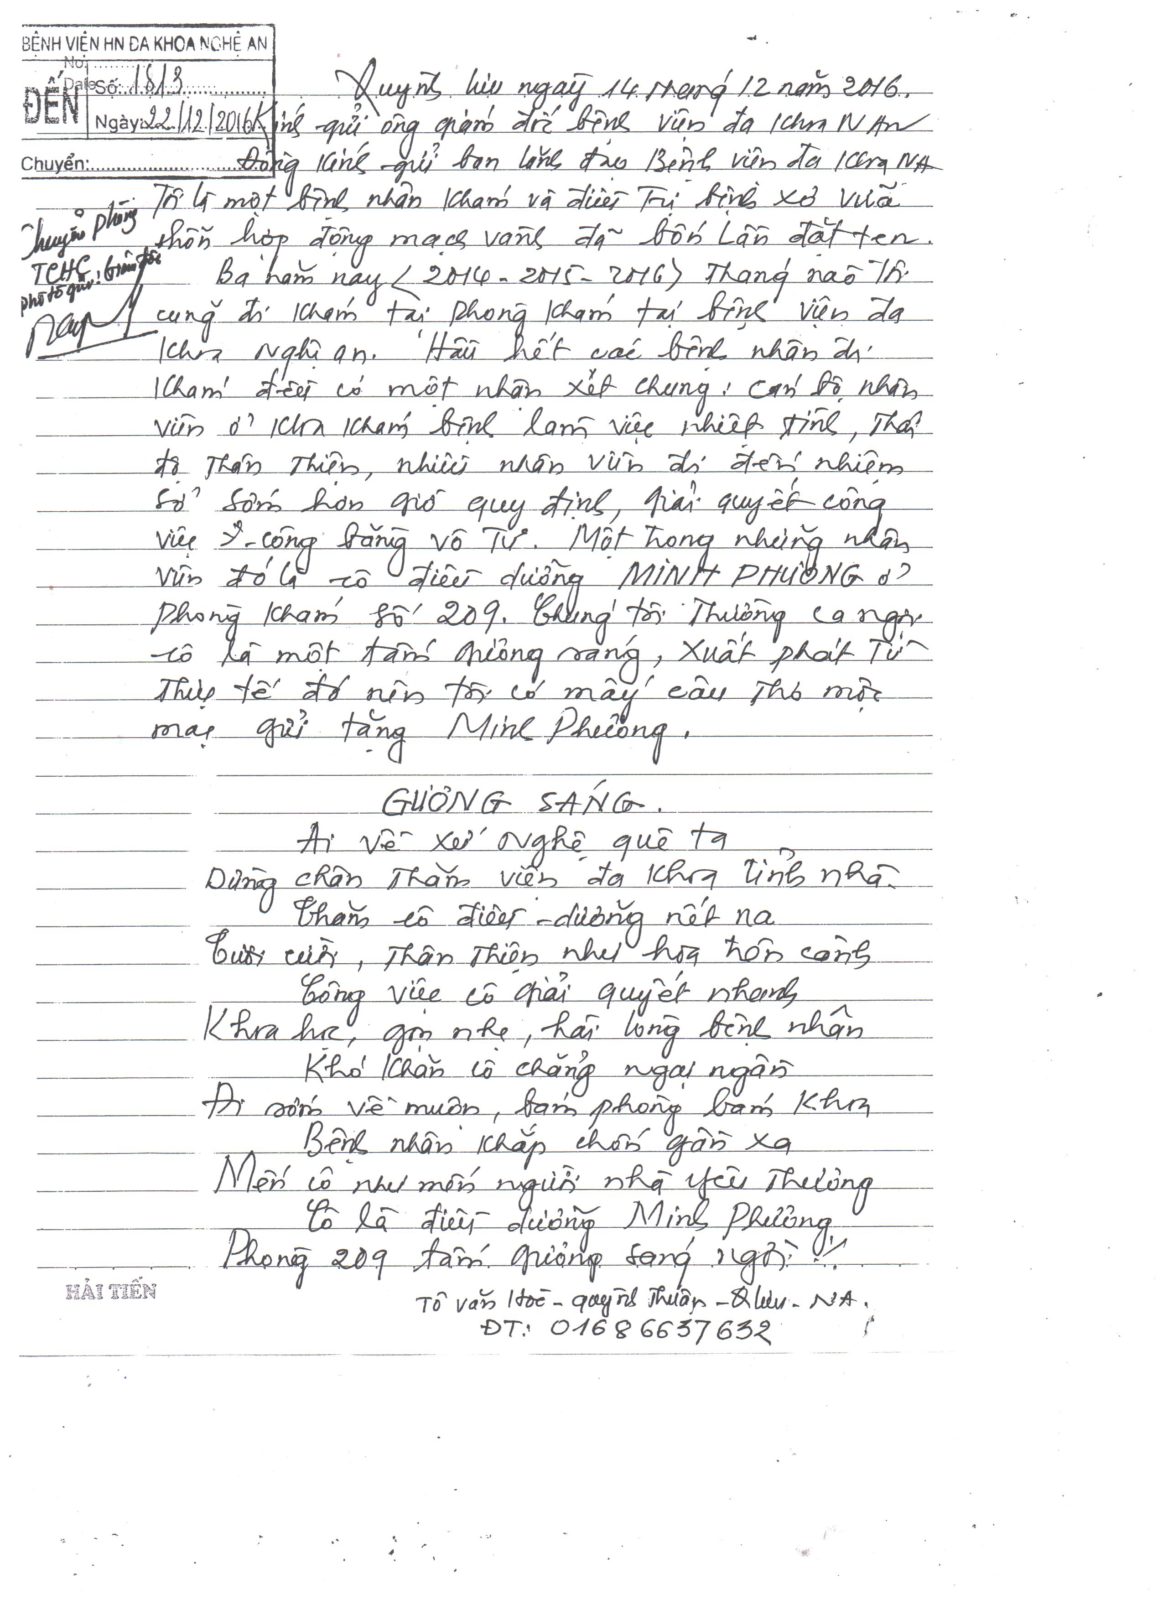 BỆNH VIỆN HN ĐA KHOA NGHỆ AN
No:
Date
ĐẾN
Số: 1513
Ngày: 22/12/2016
Chuyển:
Chuyển phòng
TCHC
Quỳnh lưu ngày 14 tháng 12 năm 2016.
Kính gửi ông giám đốc bệnh viện đa khoa N An
Đồng kính gửi ban lãnh đạo Bệnh viện đa khoa NA
Tôi là một bệnh nhân khám và điều trị bệnh xơ vữa
hỗn hợp động mạch vành đã bốn lần đặt ten.
Ba năm nay (2014 - 2015 - 2016) tháng nào tôi
cũng đi khám tại phòng khám tại bệnh viện đa
khoa Nghệ an. Hầu hết các bệnh nhân đi
khám đều có một nhận xét chung: cán bộ nhân
viên ở khoa khám bệnh làm việc nhiệt tình, thái
độ thân thiện, nhiều nhân viên đi đến nhiệm
sở sớm hơn giờ quy định, giải quyết công
việc công bằng vô tư. Một trong những nhân
viên đó là cô điều dưỡng MINH PHƯƠNG ở
phòng khám số 209. Chúng tôi thường ca ngợi
cô là một tấm gương sáng, xuất phát từ
thực tế đó nên tôi có mấy câu thơ mộc
mạc gửi tặng Minh Phương.
GƯƠNG SÁNG.
Ai về xứ nghệ quê ta
Dừng chân thăm viện đa khoa tỉnh nhà
Thăm cô điều dưỡng nết na
Tươi cười, thân thiện như hoa trên cành
Công việc cô giải quyết nhanh
Khoa học, gọn nhẹ, hài lòng bệnh nhân
Khó khăn cô chẳng ngại ngần
Đi sớm về muộn, bám phòng bám khoa
Bệnh nhân khắp chốn gần xa
Mến cô như mến người nhà yêu thương
Cô là điều dưỡng Minh Phương
Phòng 209 tấm gương sáng ngời !!
HẢI TIẾN
Tô Văn Hoè - Quỳnh Thuận - Q lưu - NA.
ĐT: 01686637632